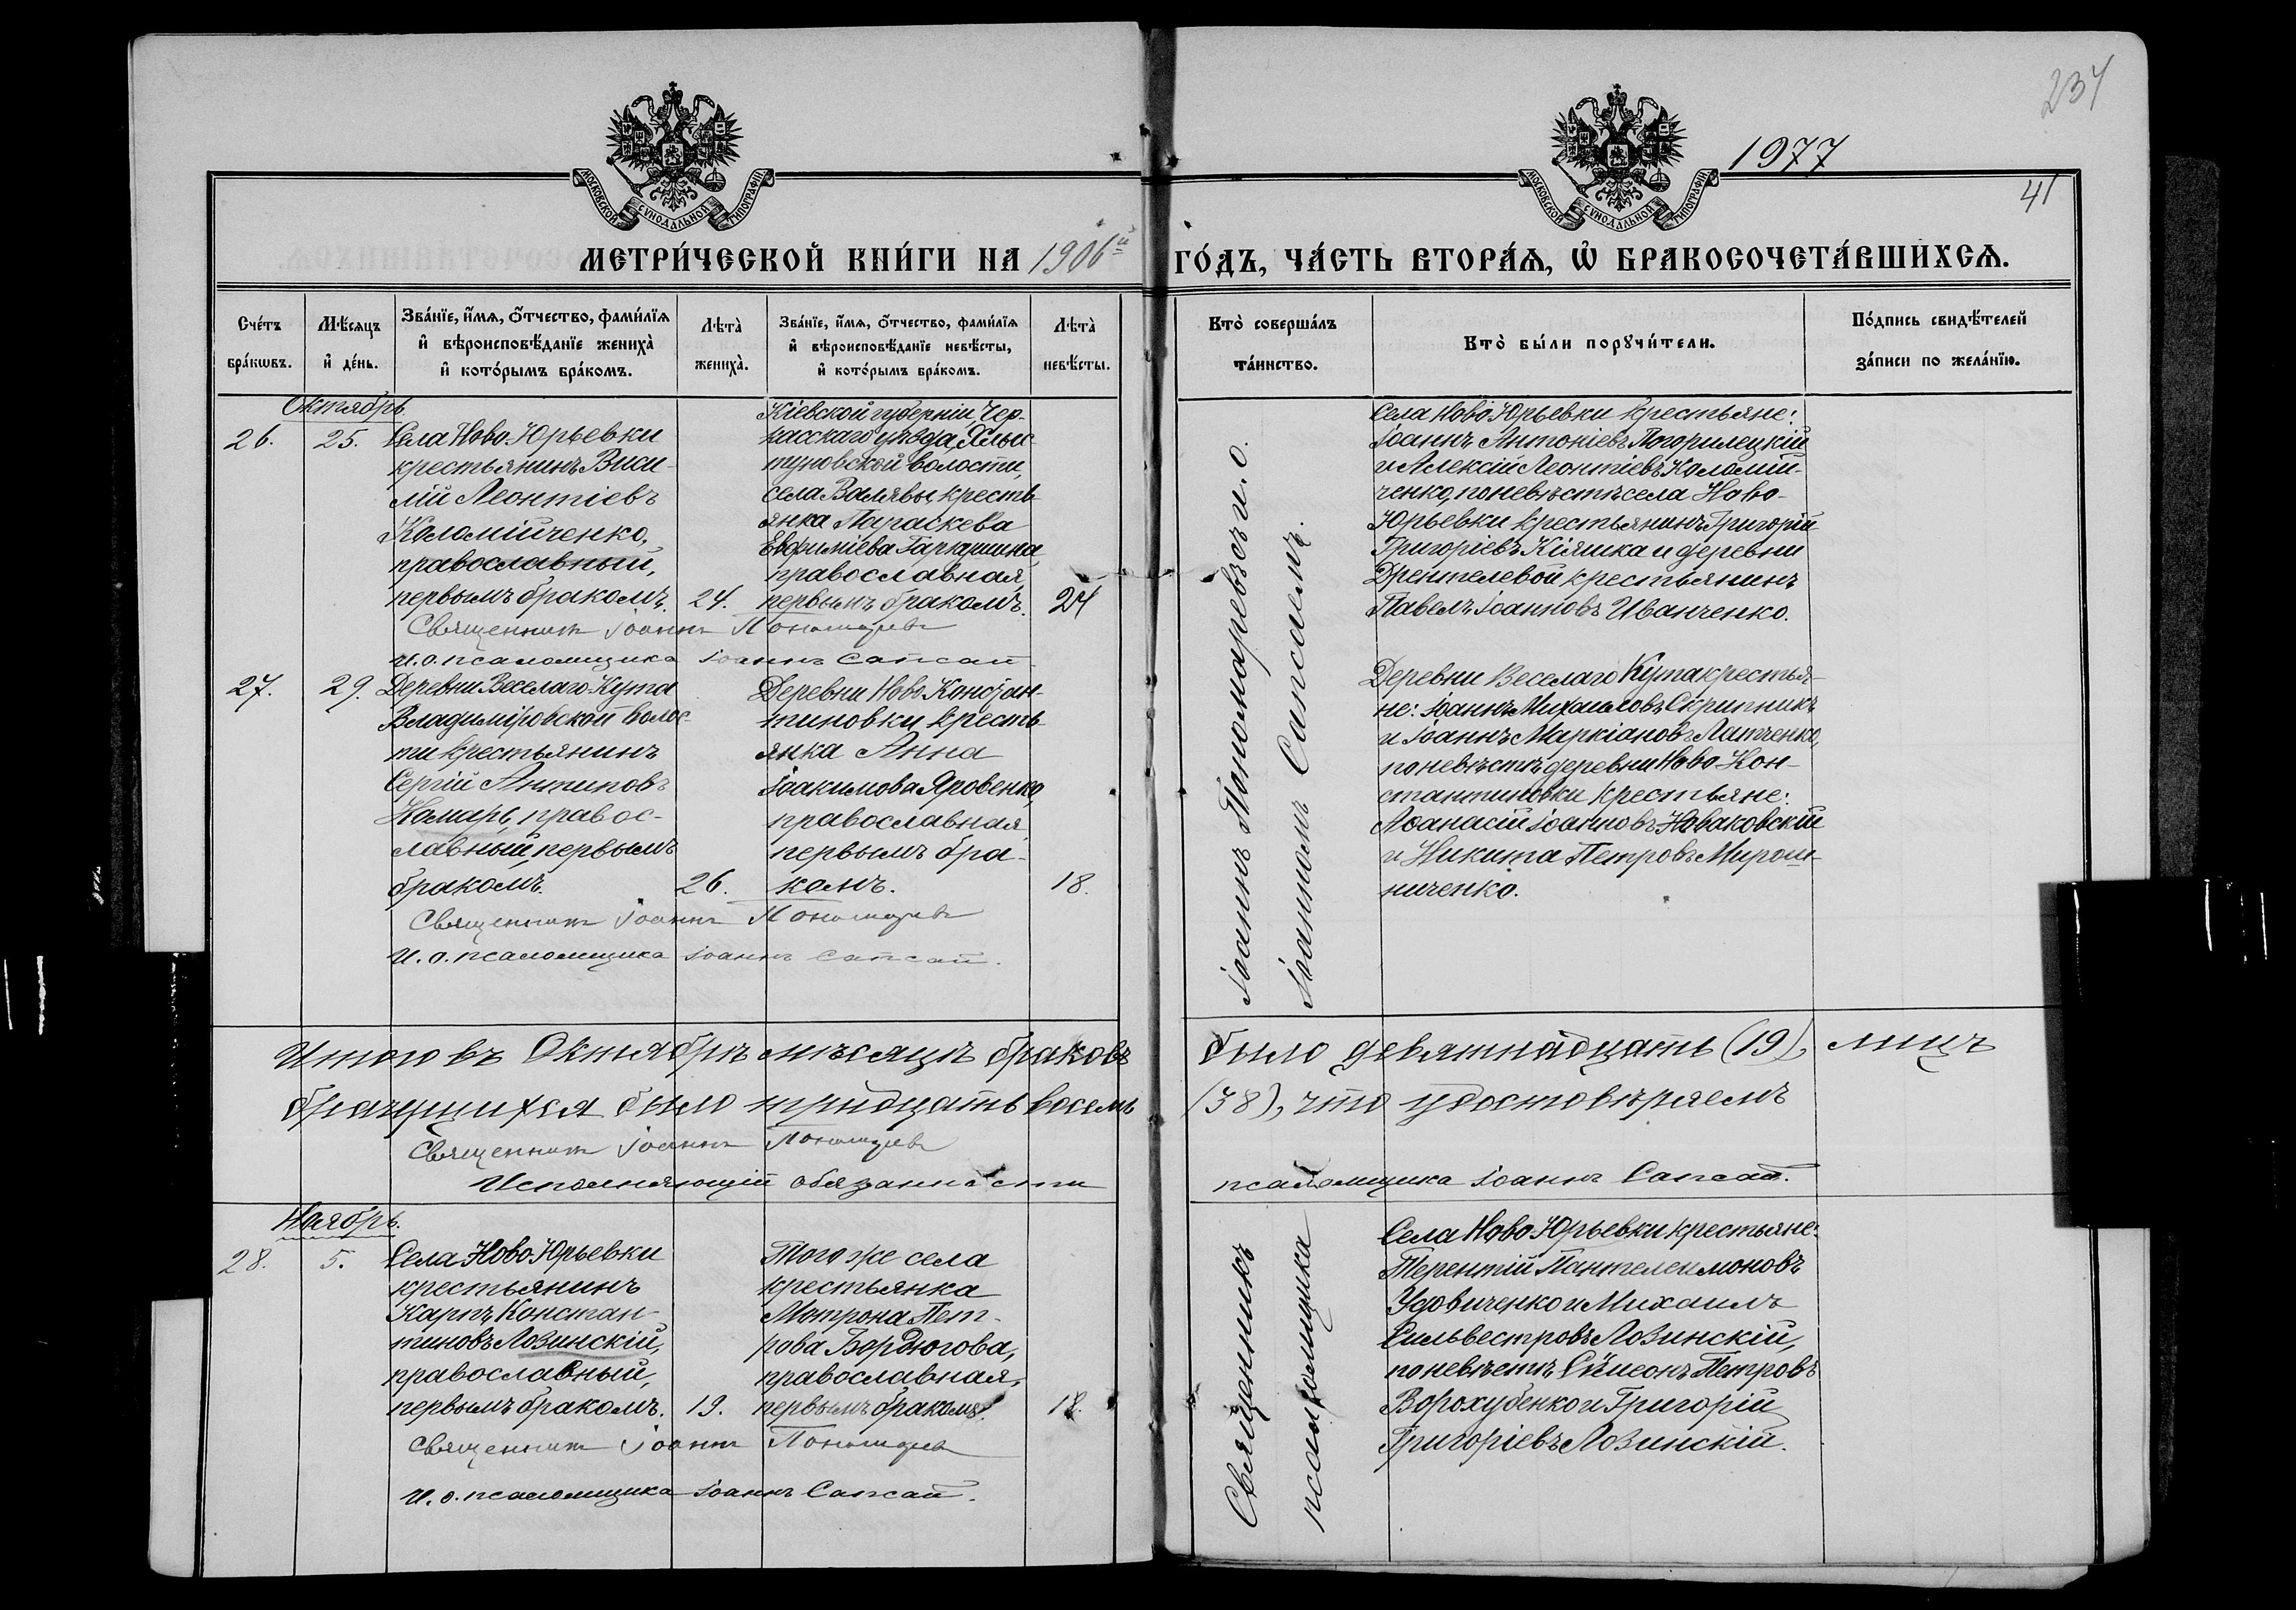 234
1977
41
МОСКОВСКОЙ СѴНОДАЛЬНОЙ ТИПОГРАФІИ
МОСКОВСКОЙ СѴНОДАЛЬНОЙ ТИПОГРАФІИ
МЕТРИ́ЧЕСКОЙ КНИ́ГИ НА 1906й ГО́ДЪ, ЧА́СТЬ ВТОРА́Ѧ, Ѡ БРАКОСОЧЕТА́ВШИХСѦ.
Сче́тъ бра́кѡвъ.
Мѣ́сѧцъ и де́нь.
Зва́нїе, и́мѧ, о́тчество, фами́лїѧ и вѣроисповѣ́данїе жениха̀ и кото́рымъ бра́комъ.
Лѣта̀ жениха̀.
Зва́нїе, и́мѧ, о́тчество, фами́лїѧ и вѣроисповѣ́данїе невѣ́сты, и кото́рымъ бра́комъ.
Лѣта̀ невѣ́сты.
Кто̀ соверша́лъ та́инство.
Кто̀ бы́ли порꙋчи́тели.
По́дпись свидѣ́телей за́писи по жела́нїю.
Октябрь.
26.
25.
Села Ново-Юрьевки
крестьянинъ Виси-
лій Леонтіевъ
Коломійченко,
православный,
первымъ бракомъ.
24.
Кіевской губерніи, Чер-
касскаго уѣзда,
туновской волости,
села Валявы, кресть-
янка Параскева
Евфиміева
православная,
первымъ бракомъ.
24
Священникъ Іоаннъ Пономаревъ
И. о. псаломщика Іоаннъ Сапсай.
Села Ново-Юрьевки крестьяне:
Іоаннъ Антоніевъ Погорилецкій
и Алексій Леонтіевъ Коломій-
ченко, по невѣстѣ села Ново-
Юрьевки крестьянинъ Григорій
Григоріевъ Кіяшка и деревни
Дрентелевой крестьянинъ
Павелъ Іоанновъ Иванченко.
27.
29.
Деревни Веселаго-Кута
Владиміровской волос-
ти крестьянинъ
Сергій Антиповъ
Комарь, правос-
лавный, первымъ
бракомъ.
26.
Деревни Ново-Констан-
тиновки кресть-
янка Анна
Іоакимова Яровенко,
православная,
первымъ бра-
комъ.
18.
Священникъ Іоаннъ Пономаревъ
И. о. псаломщика Іоаннъ Сапсай.
Деревни Веселаго Кута крестья-
не: Іоаннъ Михаиловъ Скрипникъ
и Іоаннъ Маркіановъ Лапченко,
по невѣстѣ деревни Ново-Кон-
стантиновки крестьяне:
Аѳанасій Іоанновъ Новаковскій
и Никита Петровъ Мирош-
ниченко.
Іоаннъ Пономаревъ съ и. о.
Іоанномъ Сапсаемъ.
Итого въ Октябрѣ мѣсяцѣ браковъ было девятнадцать (19), лицъ
брачущихся было тридцать восемь (38), что удостовѣряемъ
Священникъ Іоаннъ Пономаревъ
Исполняющій обязанности псаломщика Іоаннъ Сапсай.
Ноябрь.
28.
5.
Села Ново-Юрьевки
крестьянинъ
Карпъ Констан-
тиновъ Лозинскій,
православный,
первымъ бракомъ.
19.
Того же села
крестьянка
Матрона Пет-
рова Бордюгова,
православная,
первымъ бракомъ.
18.
Священникъ Іоаннъ Пономаревъ
И. о. псаломщика Іоаннъ Сапсай.
Священникъ
псаломщика
Села Ново-Юрьевки крестьяне:
Терентій Пантелеимоновъ
Удовиченко и Михаилъ
Сильвестровъ Лозинскій,
по невѣстѣ Сѵмеонъ Петровъ
Ворохубенко и Григорій
Григоріевъ Лозинскій.